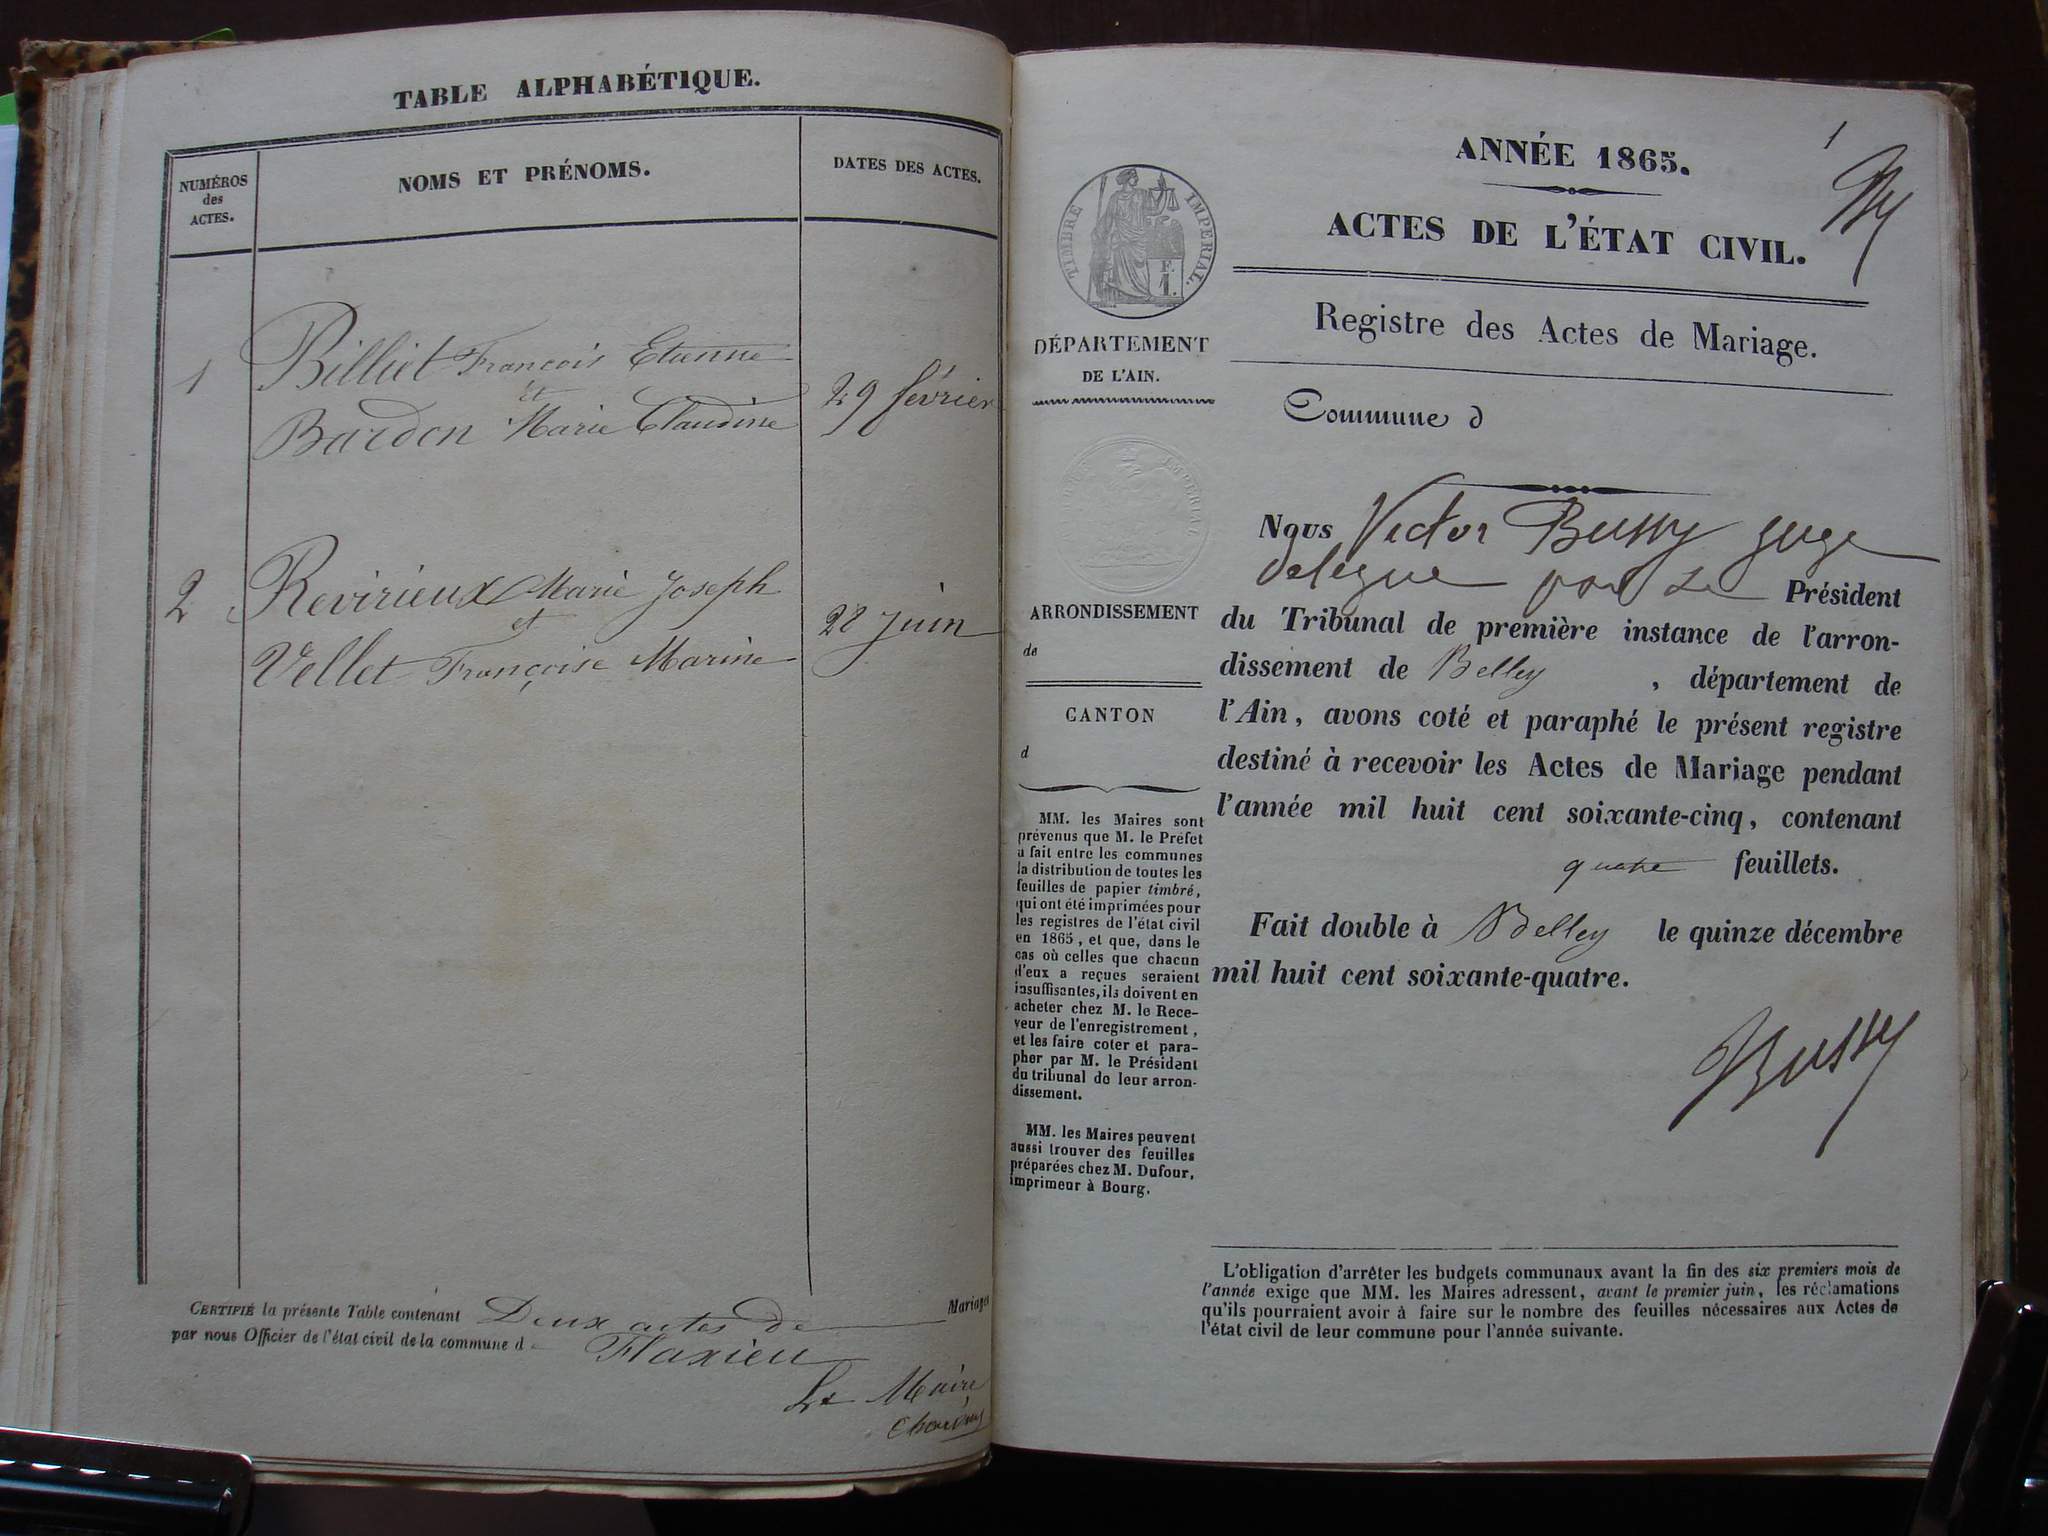 TABLE ALPHABÉTIQUE.
NUMÉROS
des
ACTES.
NOMS ET PRÉNOMS.
DATES DES ACTES.
1
Billiet François Etienne
et
Bardon Marie Claudine
29 février
2
Revirieux Marie Joseph
et
Vellet Françoise Marine
28 juin
CERTIFIÉ la présente Table contenant Deux actes de Mariages
par nous Officier de l'état civil de la commune d Flaxieu
Le Maire
1
ANNÉE 1865.
ACTES DE L'ÉTAT CIVIL.
Registre des Actes de Mariage.
TIMBRE IMPERIAL.
F.
1.
DÉPARTEMENT
DE L'AIN.
ARRONDISSEMENT
de
CANTON
d
MM. les Maires sont
prévenus que M. le Préfet
a fait entre les communes
la distribution de toutes les
feuilles de papier timbré,
qui ont été imprimées pour
les registres de l'état civil
en 1865, et que, dans le
cas où celles que chacun
d'eux a reçues seraient
insuffisantes, ils doivent en
acheter chez M. le Rece-
veur de l'enregistrement,
et les faire coter et para-
pher par M. le Président
du tribunal de leur arron-
dissement.
MM. les Maires peuvent
aussi trouver des feuilles
préparées chez M. Dufour,
imprimeur à Bourg.
Commune d
Nous Victor Bussy juge
delegue par Le Président
du Tribunal de première instance de l'arron-
dissement de Belley , département de
l'Ain, avons coté et paraphé le présent registre
destiné à recevoir les Actes de Mariage pendant
l'année mil huit cent soixante-cinq, contenant
quatre feuillets.
Fait double à Belley le quinze décembre
mil huit cent soixante-quatre.
Bussy
L'obligation d'arrêter les budgets communaux avant la fin des six premiers mois de
l'année exige que MM. les Maires adressent, avant le premier juin, les réclamations
qu'ils pourraient avoir à faire sur le nombre des feuilles nécessaires aux Actes de
l'état civil de leur commune pour l'année suivante.